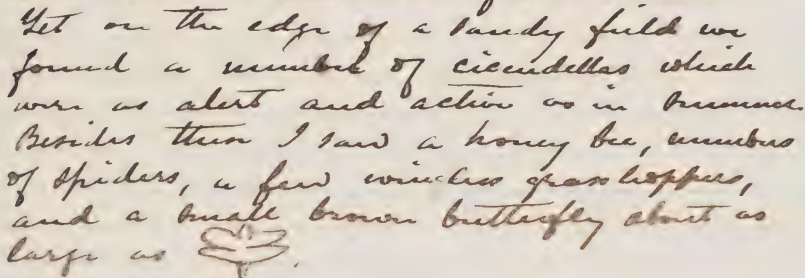 Yet on the edge of a sandy field we
found a number of cicindellas which
were as alert and active as in summer.
Besides these I saw a honey bee, numbers
of spiders, a few wingless grasshoppers,
and a small brown butterfly about as
large as